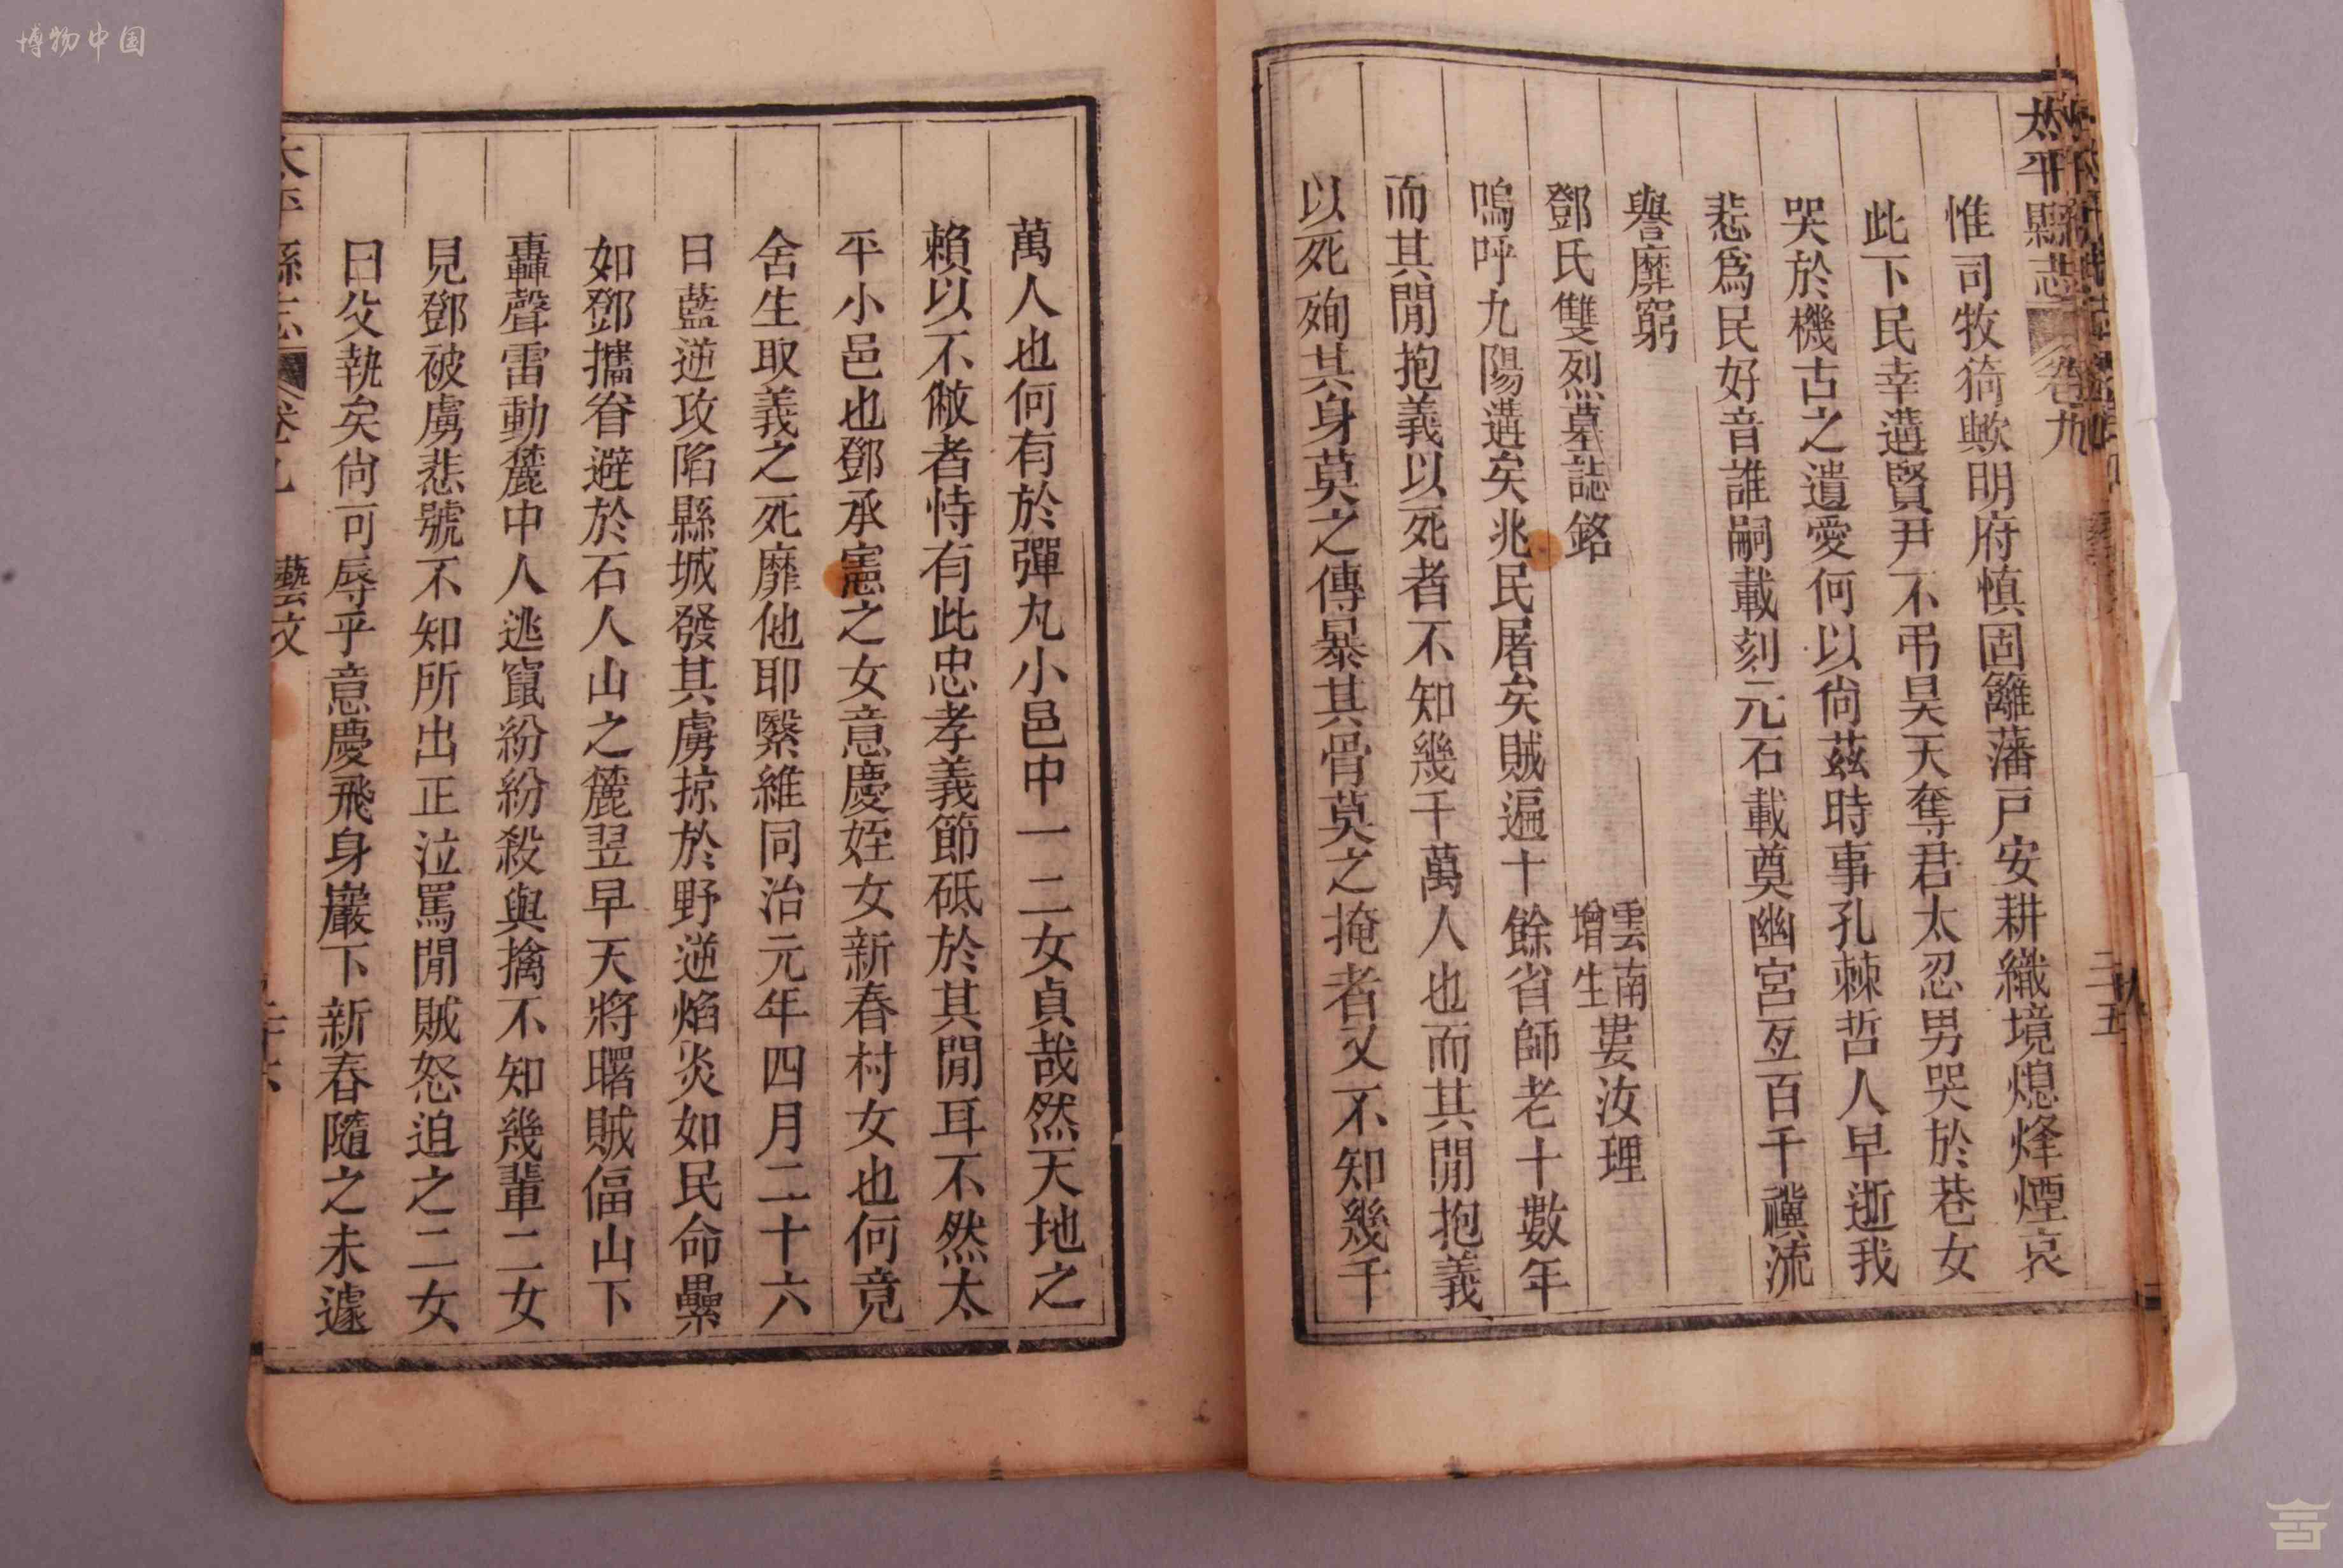 博物中国
太平縣志 卷九
惟司牧猗歟明府慎固籬藩戸安耕織境熄烽煙哀
此下民幸遘賢尹不弔昊天奪君太忍男哭於巷女
哭於機古之遺愛何以尚茲時事孔棘哲人早逝我
悲爲民好音誰嗣載刻元石載奠幽宮亙百千禩流
譽靡窮
鄧氏雙烈墓誌銘 雲南增生婁汝理
嗚呼九陽遘矣兆民屠矣賊遍十餘省師老十數年
而其閒抱義以死者不知幾千萬人也而其閒抱義
以死殉其身莫之傳暴其骨莫之掩者又不知幾千
萬人也何有於彈丸小邑中一二女貞哉然天地之
賴以不敝者恃有此忠孝義節砥於其閒耳不然太
平小邑也鄧承憲之女意慶姪女新春村女也何竟
舍生取義之死靡他耶緊維同治元年四月二十六
日藍逆攻陷縣城發其虜掠於野逆焰炎如民命纍
如鄧攜眷避於石人山之麓翌早天將曙賊偪山下
轟聲雷動麓中人逃竄紛紛殺與擒不知幾輩二女
見鄧被虜悲號不知所出正泣罵閒賊怒迫之二女
曰父執矣尚可辱乎意慶飛身巖下新春隨之未遽
太平縣志 卷九 藝文